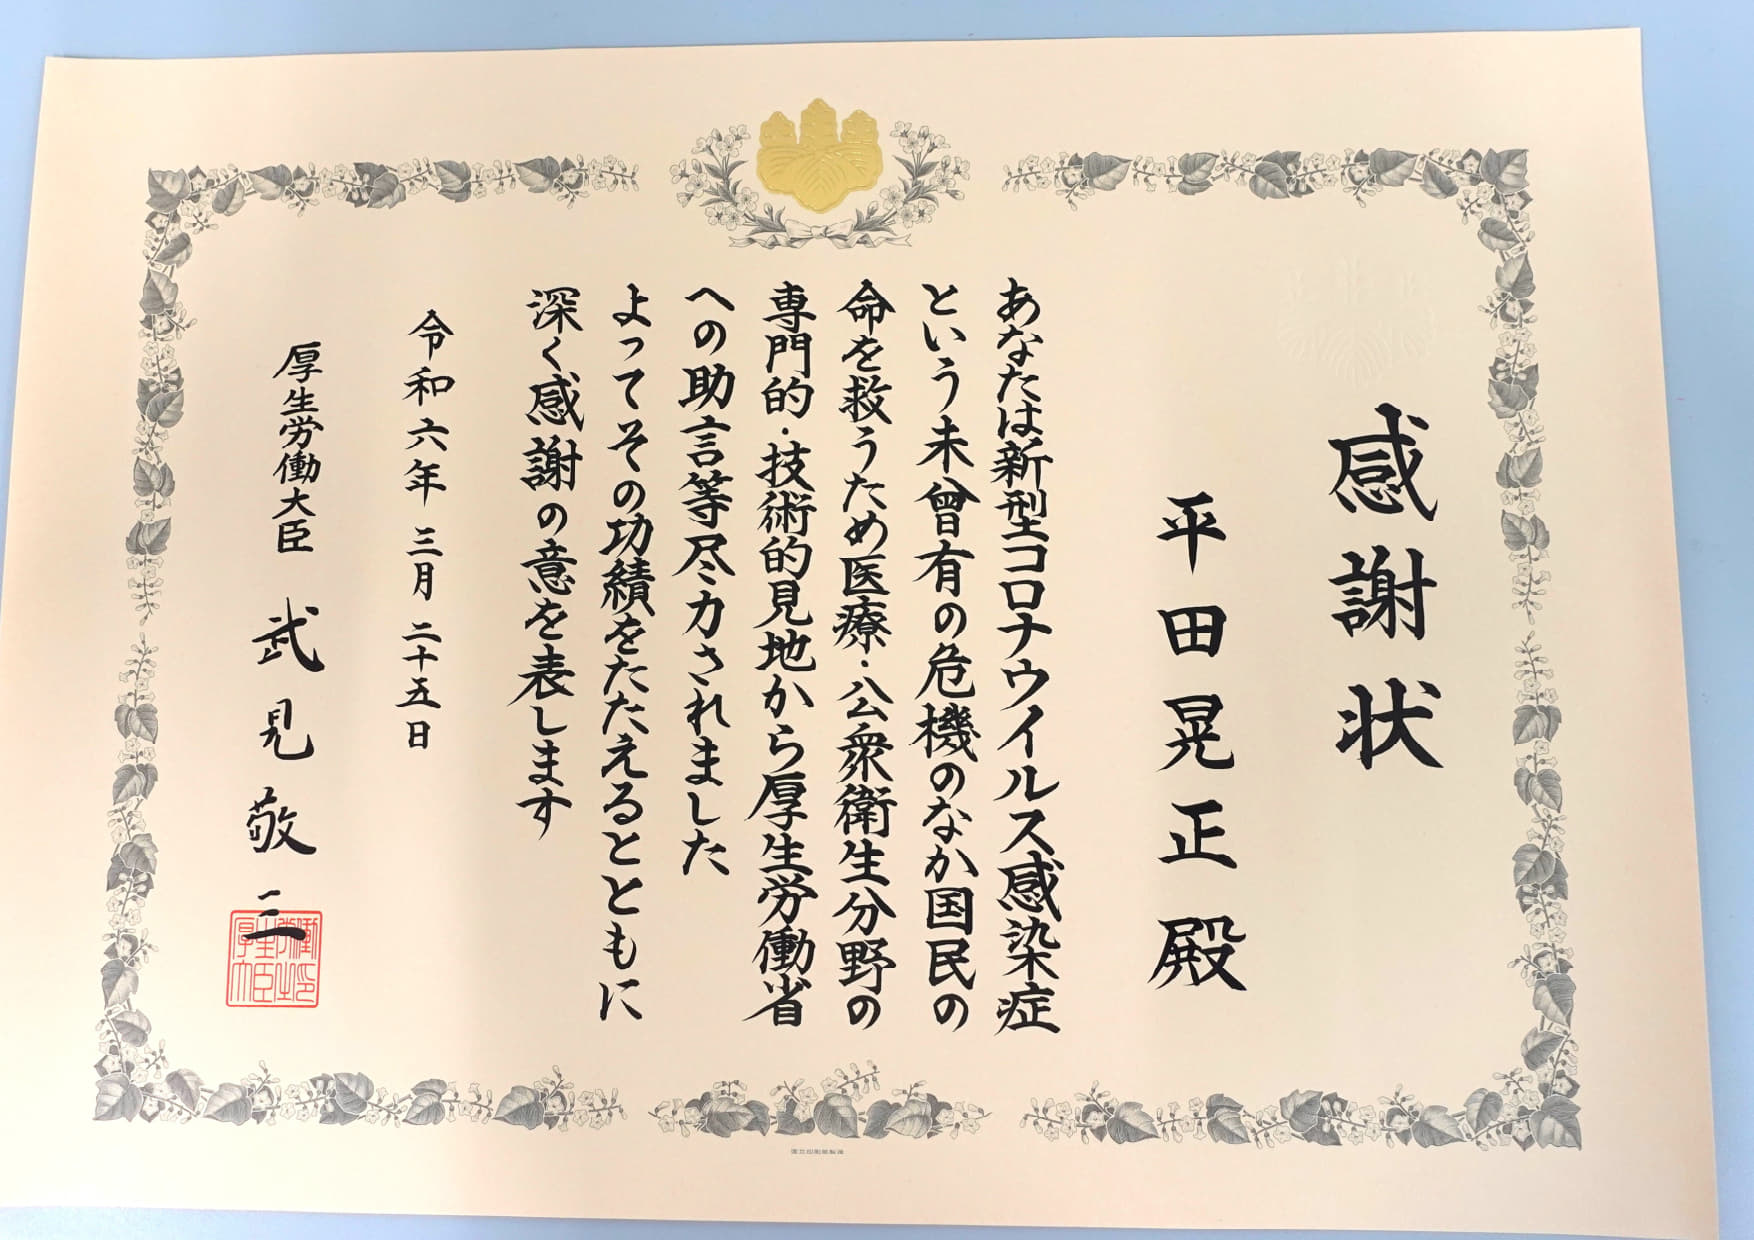 感謝状
平田晃正殿
あなたは新型コロナウイルス感染症
という未曾有の危機のなか国民の
命を救うため医療・公衆衛生分野の
専門的・技術的見地から厚生労働省
への助言等尽力されました
よってその功績をたたえるとともに
深く感謝の意を表します
令和六年三月二十五日
厚生労働大臣 武見敬三
厚生労働大臣之印
国立印刷局製造